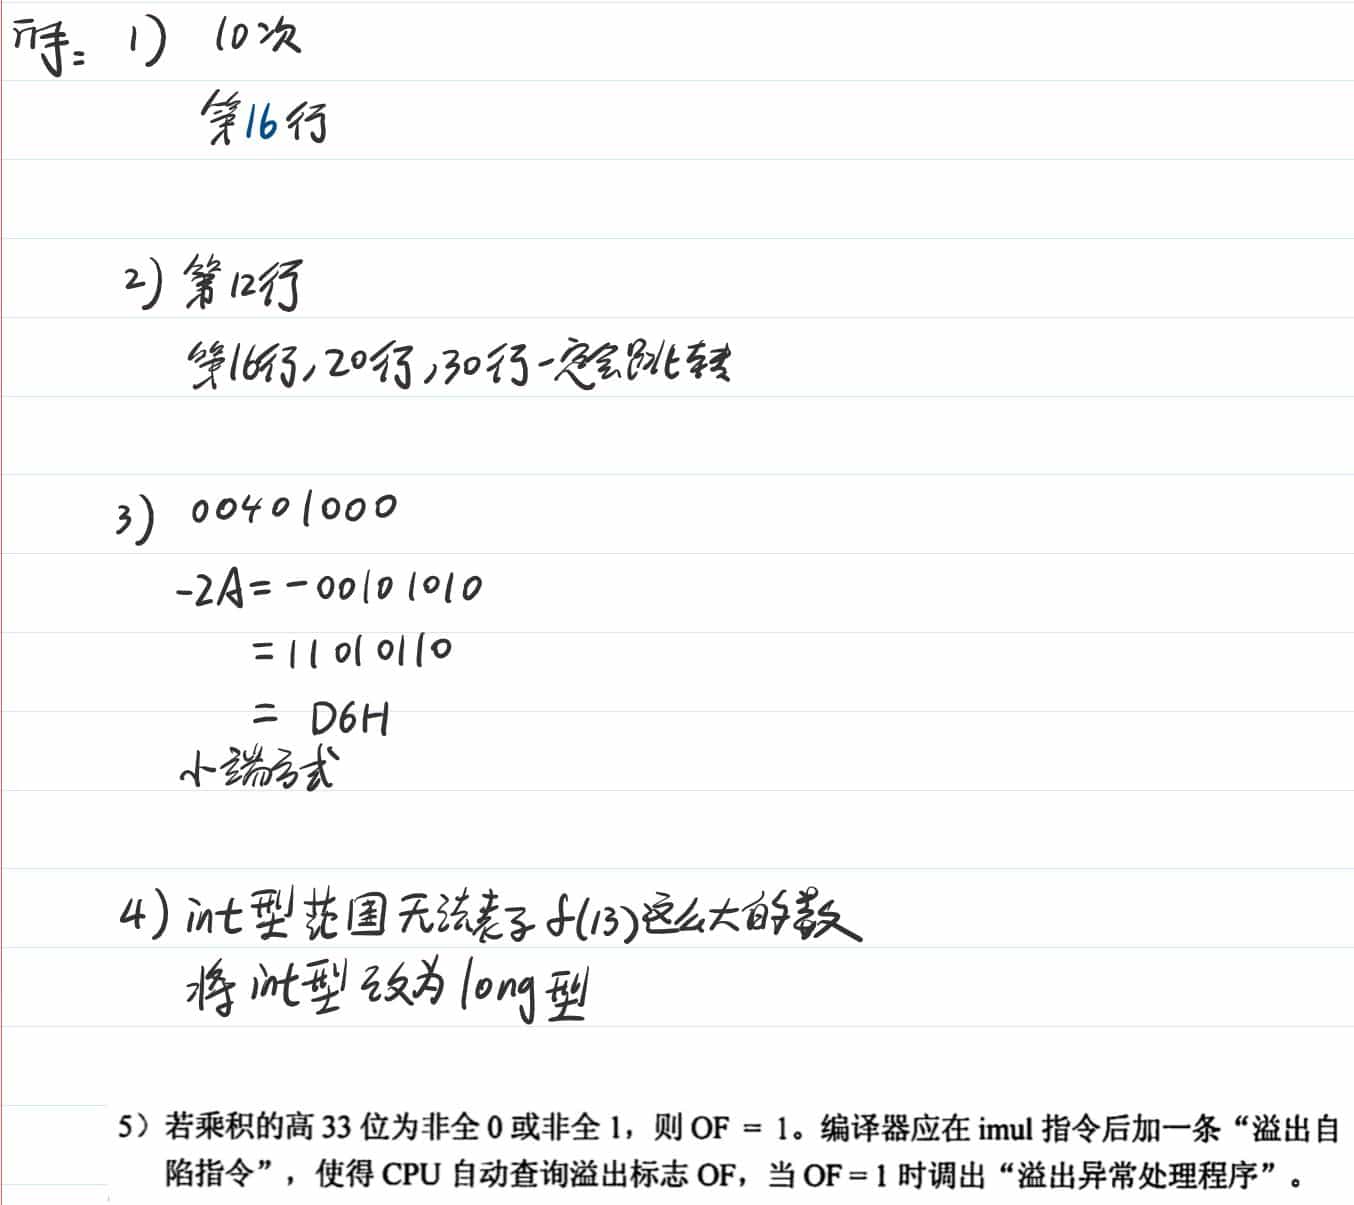 解: 1) 10次
第16行
2) 第12行
第16行,20行,30行一定会跳转
3) 00401000
-2A = -00101010
= 11010110
= D6H
小端方式
4) int型范围无法表示f(13)这么大的数
将int型改为long型
5）若乘积的高 33 位为非全 0 或非全 1，则 OF = 1。编译器应在 imul 指令后加一条“溢出自
陷指令”，使得 CPU 自动查询溢出标志 OF，当 OF = 1 时调出“溢出异常处理程序”。